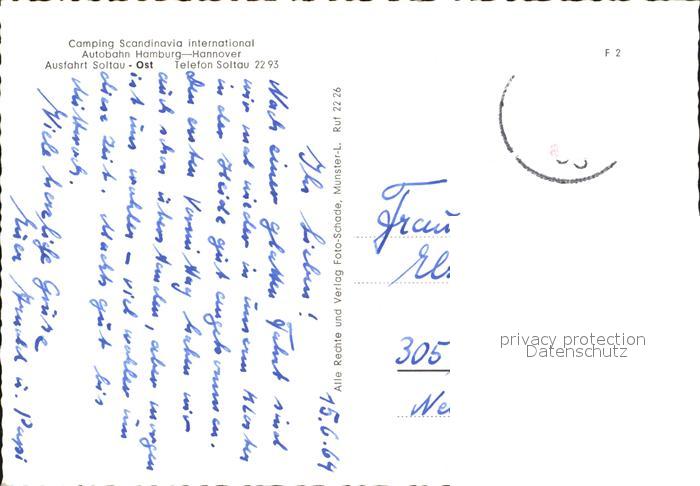 Camping Scandinavia international
Autobahn Hamburg—Hannover
Ausfahrt Soltau - Ost Telefon Soltau 22 93
F 2
15.6.64
Ihr Lieben!
Nach einer glatten Fahrt sind
wir mal wieder in unserm Kloster
in der Heide gut angekommen.
Den ersten Vormittag haben wir
auch schon überstanden, aber morgen
ist uns wohler – viel wohler um
diese Zeit. Machts gut bis
Mittwoch.
Viele herzliche Grüße
u. Papi
Alle Rechte und Verlag Foto-Schade, Munster-L. Ruf 22 26
Frau
305
privacy protection
Datenschutz